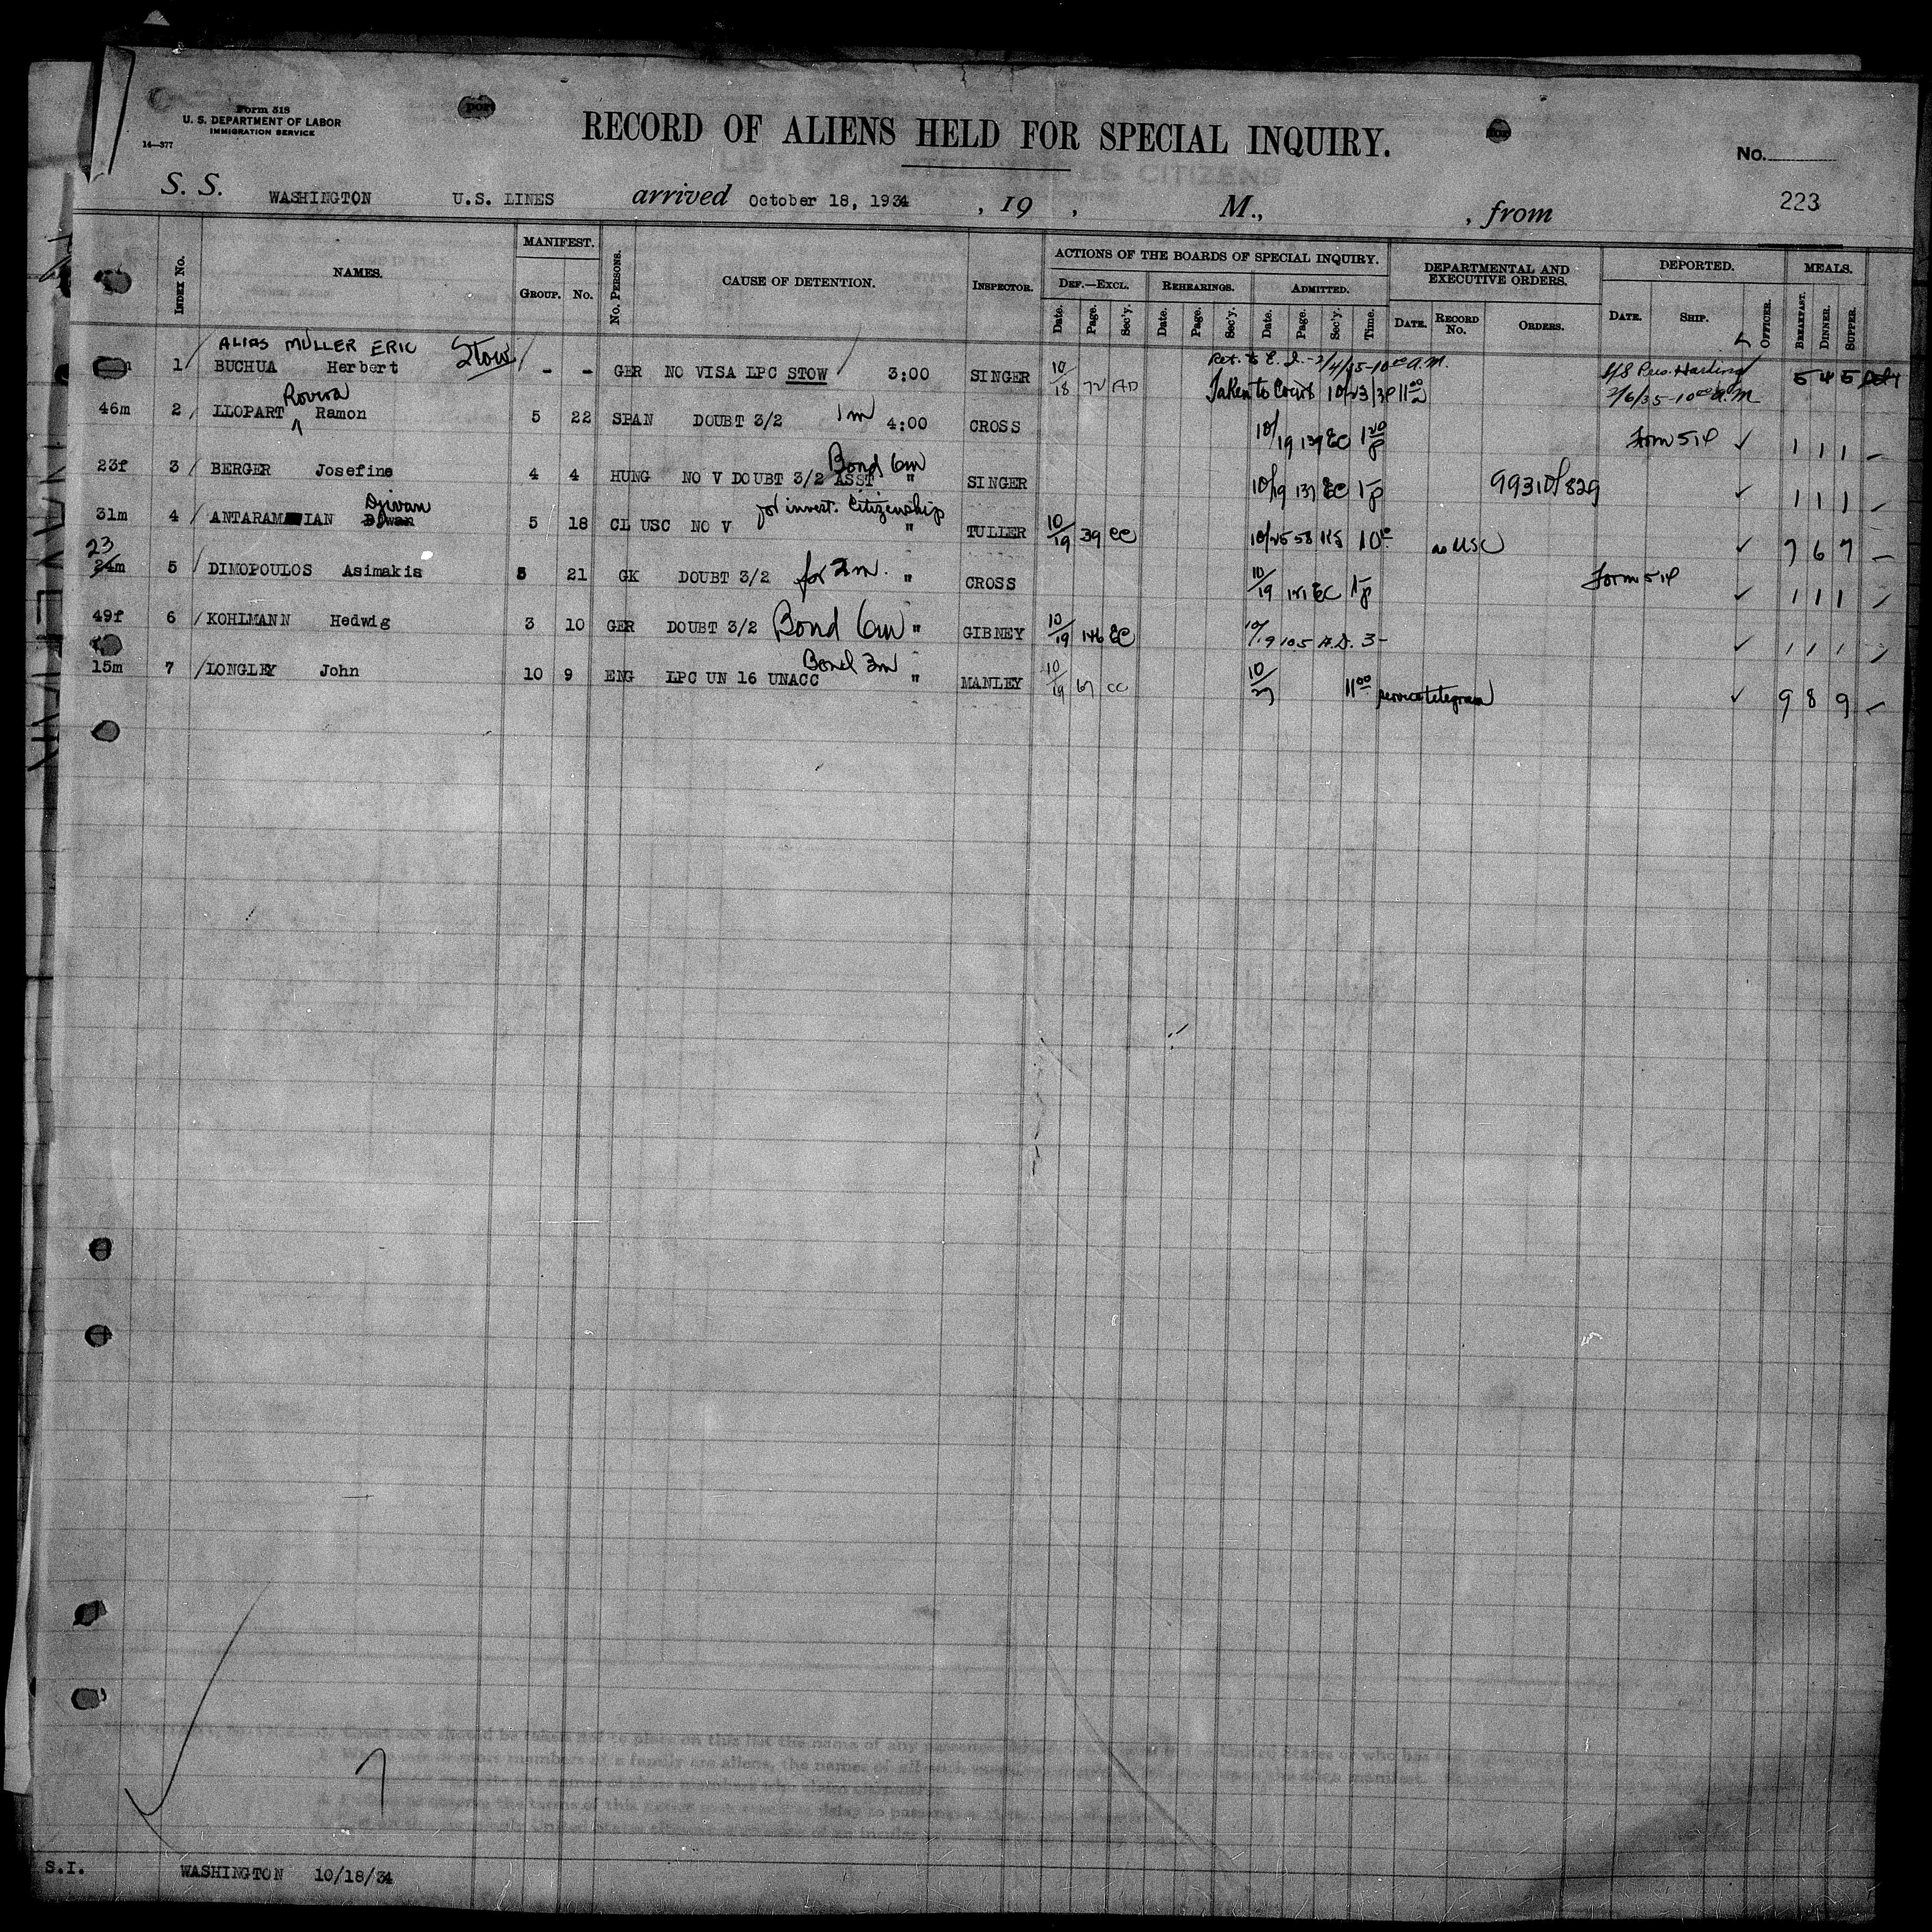 Form 518
U. S. DEPARTMENT OF LABOR
IMMIGRATION SERVICE
14—377
RECORD OF ALIENS HELD FOR SPECIAL INQUIRY.
No.
S. S. WASHINGTON U.S. LINES arrived October 18, 1934 , 19 , M., , from 223
INDEX No. NAMES. MANIFEST. GROUP. No. No. PERSONS. CAUSE OF DETENTION. INSPECTOR.
ACTIONS OF THE BOARDS OF SPECIAL INQUIRY.
DEF.—EXCL. REHEARINGS. ADMITTED.
Date. Page. Sec'y. Date. Page. Sec'y. Date. Page. Sec'y. Time.
DEPARTMENTAL AND EXECUTIVE ORDERS.
DATE. RECORD No. ORDERS.
DEPORTED.
DATE. SHIP. OFFICER.
MEALS.
BREAKFAST. DINNER. SUPPER.
ALIAS MULLER ERIC Stow
1 BUCHUA Herbert - - GER NO VISA LPC STOW 3:00 SINGER 10/18 72 AD Ret. to E. I. - 2/4/35-10 00 A.M. S/S Pres. Harding 5 4 5
Taken to Court 10/23/34 11 00 2/6/35-10 00 A.M
Rovira
46m 2 LLOPART Ramon 5 22 SPAN DOUBT 3/2 1m 4:00 CROSS 10/19 139 EC 1 20 P Form 514 ✓ 1 1 1
Bond 6m
23f 3 BERGER Josefine 4 4 HUNG NO V DOUBT 3/2 ASST " SINGER 10/19 137 EC 1 P 99310/829 ✓ 1 1 1
Djivan for invest. Citizenship
31m 4 ANTARAMIAN 5 18 CL USC NO V " TULLER 10/19 39 EC 10/25 58 10 as USC ✓ 7 6 7
23
24m 5 DIMOPOULOS Asimakis 5 21 GK DOUBT 3/2 for 2m. " CROSS 10/19 EC 1 P Form 514 ✓ 1 1 1
49f 6 KOHLMANN Hedwig 3 10 GER DOUBT 3/2 Bond 6m " GIBNEY 10/19 146 EC 10/19 105 A.D. 3- ✓ 1 1 1
Bond 3m
15m 7 LONGLEY John 10 9 ENG LPC UN 16 UNACC " MANLEY 10/19 67 CC 10/27 11 00 telegram ✓ 9 8 9
S.I. WASHINGTON 10/18/34